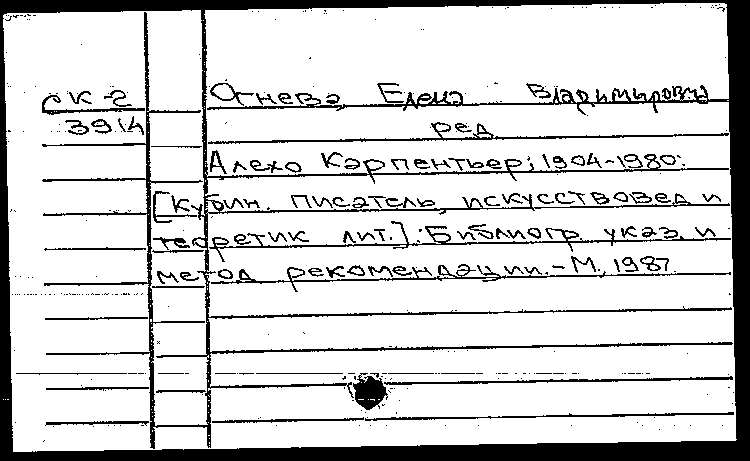 СК-2 Огнева Елена Владимировна
3914 ред.
Алехо Карпентьер; 1904-1980:
[Кубин. писатель, искусствовед и
теоретик лит.]: Библиогр. указ. и
метод рекомендации. - М., 1987